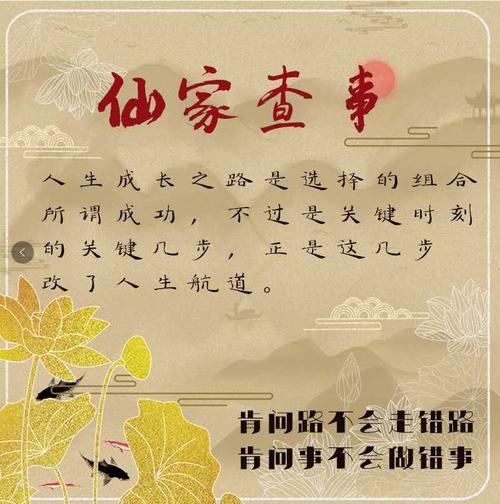 仙家查事
人生成长之路是选择的组合
所谓成功，不过是关键时刻
的关键几步，正是这几步
改了人生航道。
肯问路不会走错路
肯问事不会做错事